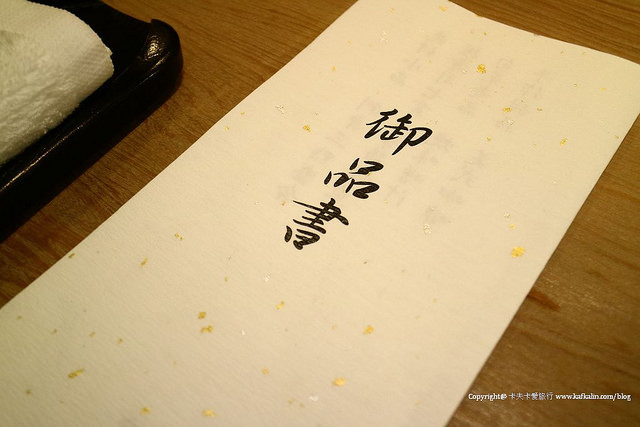 御品書
Copyright® 卡夫卡愛旅行 www.kafkalin.com/blog